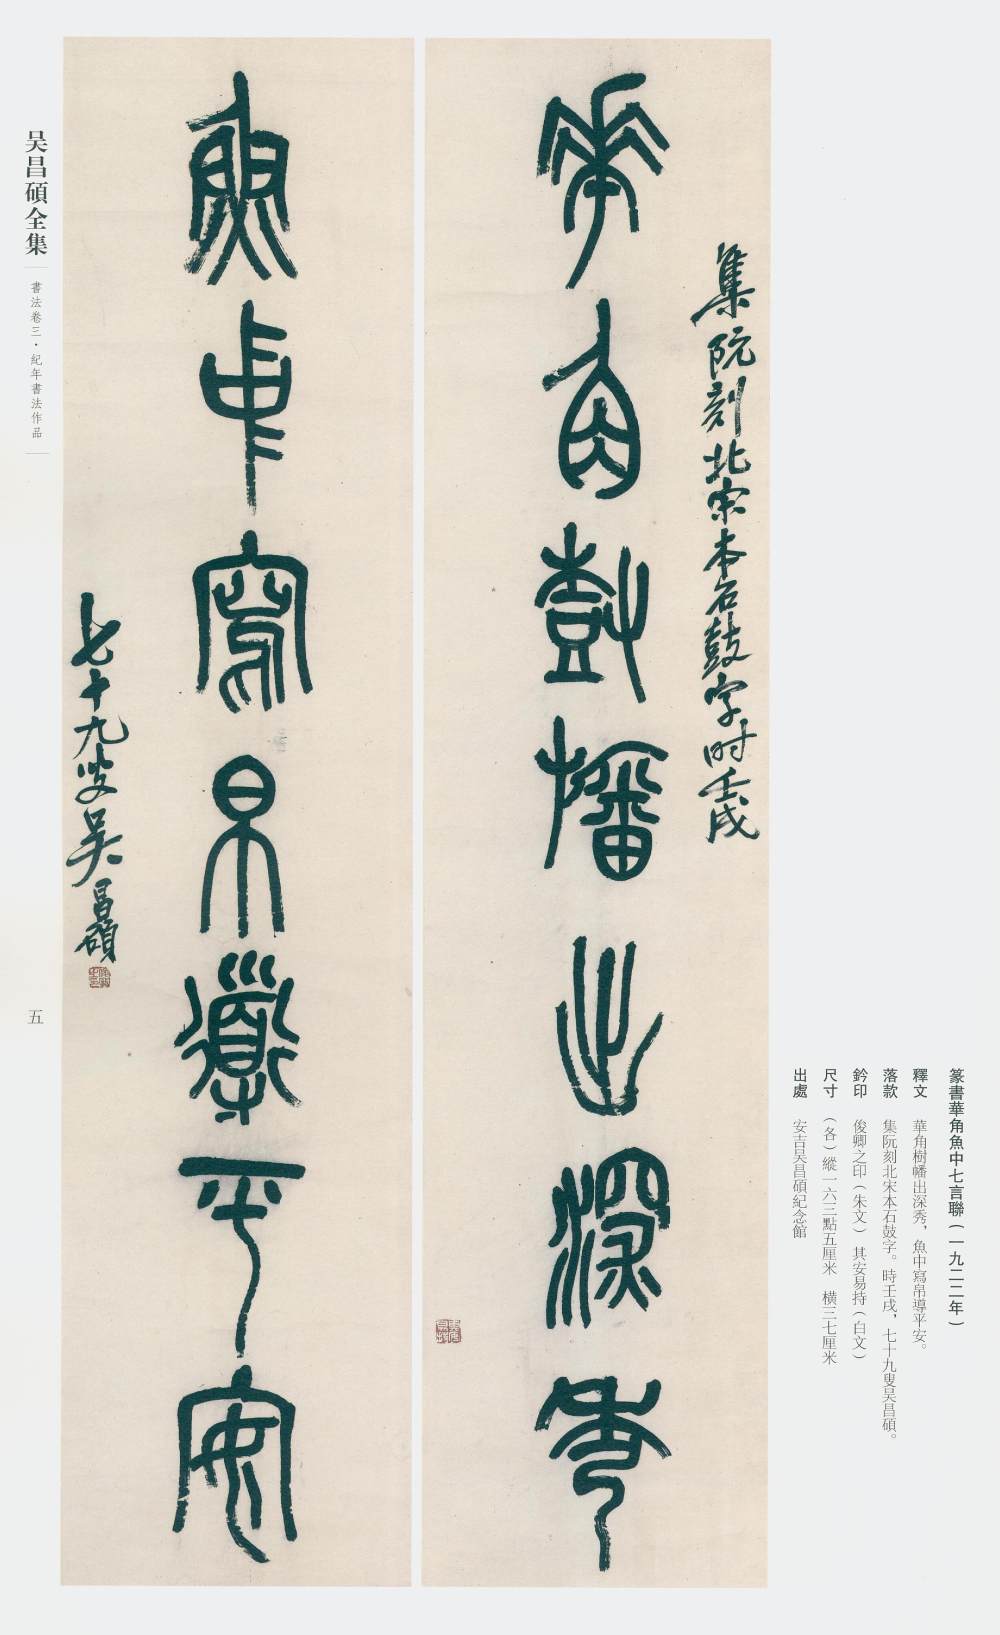 華角樹幡出深秀
集阮刻北宋本石鼓字时壬戌
魚中寫帛導平安
七十九叟吴昌碩
篆書華角魚中七言聯（一九二二年）
釋文　華角樹幡出深秀，魚中寫帛導平安。
落款　集阮刻北宋本石鼓字。時壬戌，七十九叟吴昌碩。
鈐印　俊卿之印（朱文）　其安易持（白文）
尺寸　（各）縱一六三點五厘米　橫三七厘米
出處　安吉吴昌碩紀念館
吴昌碩全集
書法卷三·紀年書法作品
五